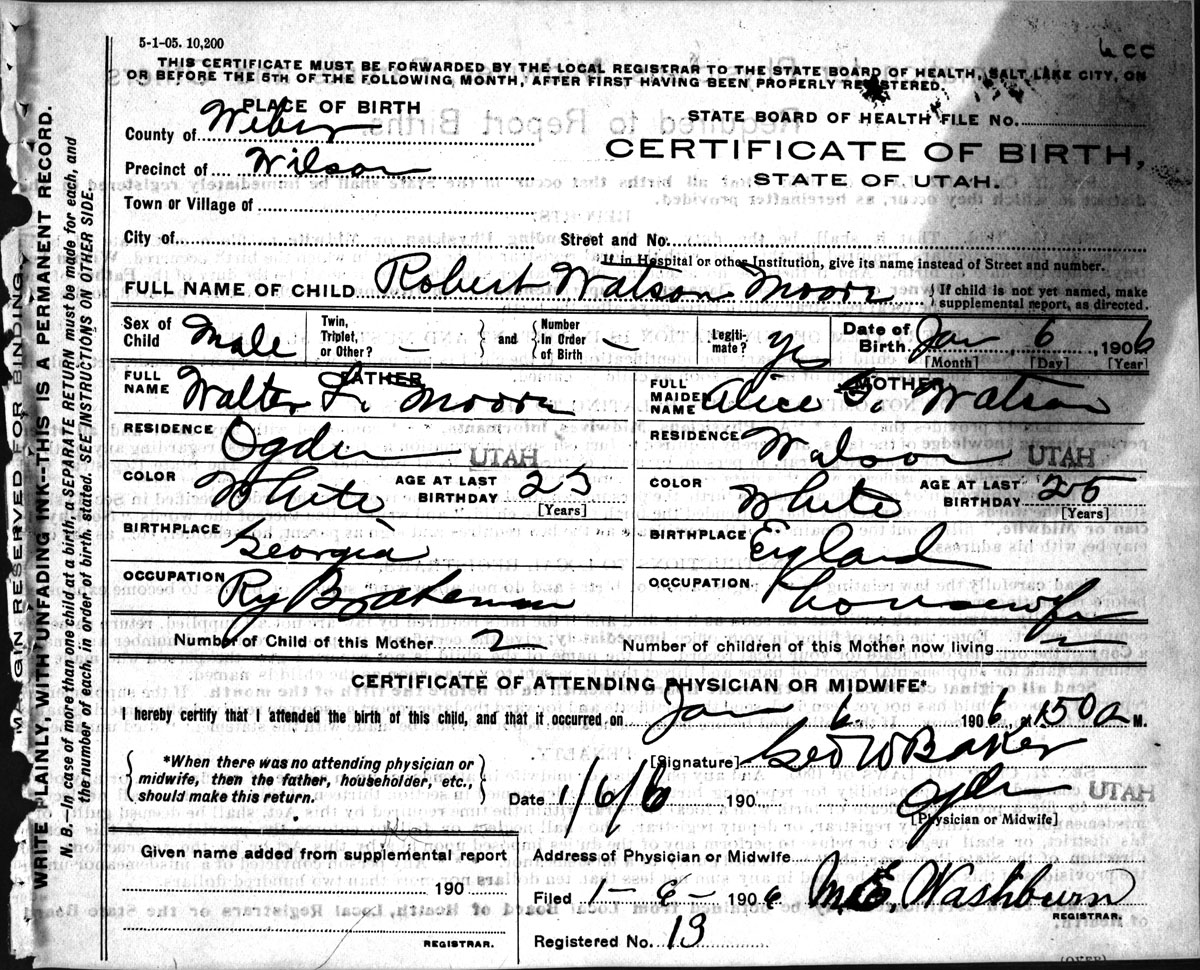 5-1-05. 10,200
THIS CERTIFICATE MUST BE FORWARDED BY THE LOCAL REGISTRAR TO THE STATE BOARD OF HEALTH, SALT LAKE CITY, ON
OR BEFORE THE 5TH OF THE FOLLOWING MONTH, AFTER FIRST HAVING BEEN PROPERLY REGISTERED.
PLACE OF BIRTH
STATE BOARD OF HEALTH FILE NO.
County of Weber
CERTIFICATE OF BIRTH,
Precinct of Wilson
STATE OF UTAH.
Town or Village of
City of
Street and No.
If in Hospital or other Institution, give its name instead of Street and number.
FULL NAME OF CHILD Robert Watson Moore { If child is not yet named, make
supplemental report, as directed.
Sex of Child Male Twin, Triplet, or Other? — } and { Number In Order of Birth — Legiti-mate? yes Date of Birth. Jan 6 1906
[Month] [Day] [Year]
FATHER MOTHER
FULL NAME Walter L. Moore FULL MAIDEN NAME Alice G. Watson
RESIDENCE Ogden UTAH RESIDENCE UTAH
COLOR White AGE AT LAST BIRTHDAY [Years] COLOR White AGE AT LAST BIRTHDAY 25 [Years]
BIRTHPLACE Georgia BIRTHPLACE England
OCCUPATION Ry Brakeman OCCUPATION Housewife
Number of Child of this Mother 2 Number of children of this Mother now living 2
CERTIFICATE OF ATTENDING PHYSICIAN OR MIDWIFE*
I hereby certify that I attended the birth of this child, and that it occurred on Jan 6. 1906, at 150 a M.
{ *When there was no attending physician or
midwife, then the father, householder, etc.,
should make this return. }
[Signature] Geo W Baker
Date 1/6/6 190 Ogden UTAH
[Physician or Midwife]
Given name added from supplemental report
190
REGISTRAR.
Address of Physician or Midwife
Filed 1-6-1906 M.E. Washburn
REGISTRAR.
Registered No. 13
(OVER)
MARGIN RESERVED FOR BINDING
WRITE PLAINLY, WITH UNFADING INK--THIS IS A PERMANENT RECORD.
N. B.—In case of more than one child at a birth, a SEPARATE RETURN must be made for each, and
the number of each, in order of birth, stated. SEE INSTRUCTIONS ON OTHER SIDE.